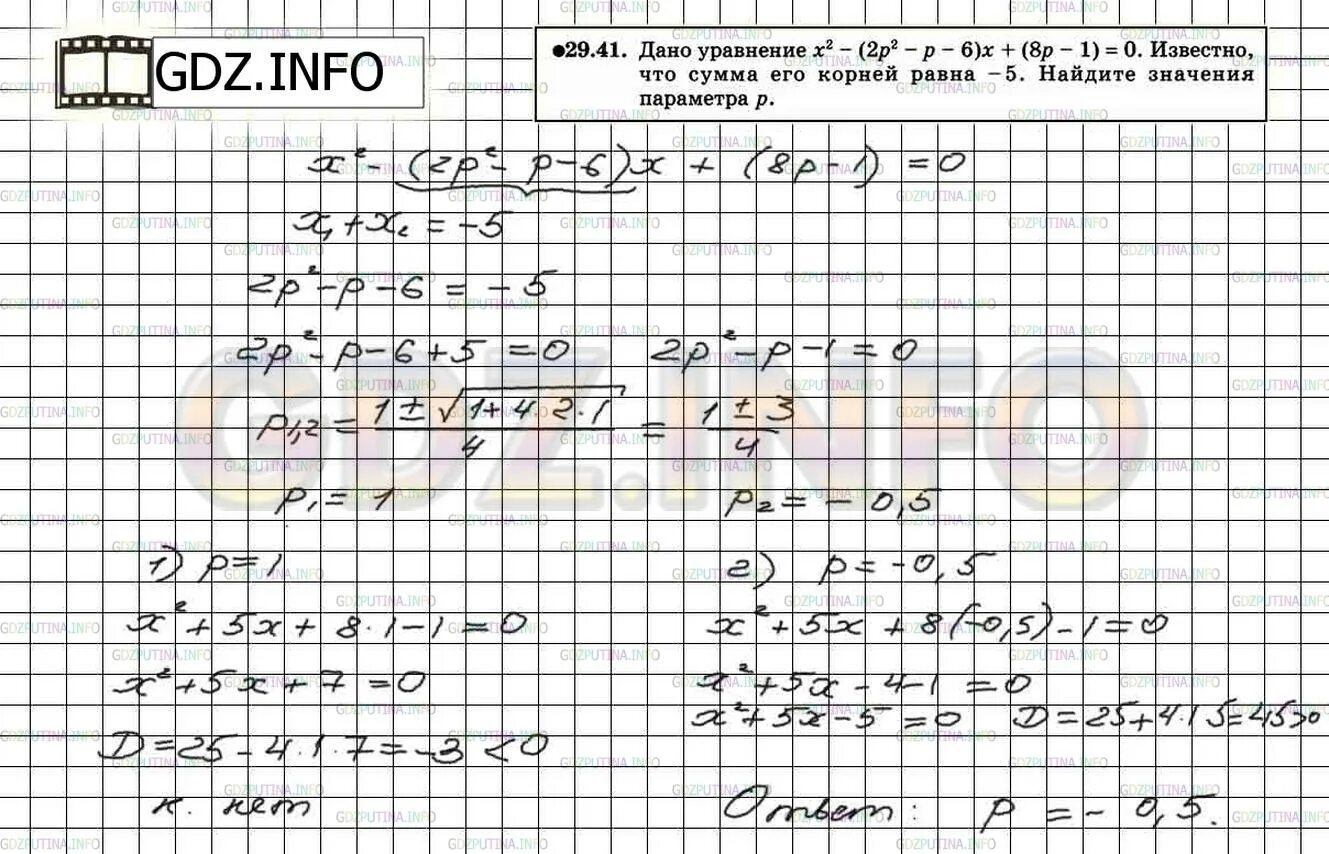 GDZ.INFO
•29.41. Дано уравнение x² − (2p² − p − 6)x + (8p − 1) = 0. Известно,
что сумма его корней равна −5. Найдите значения
параметра p.
x² − (2p² − p − 6)x + (8p − 1) = 0
x₁ + x₂ = −5
2p² − p − 6 = −5
2p² − p − 6 + 5 = 0 2p² − p − 1 = 0
p₁,₂ = (1 ± √(1 + 4·2·1))/4 = (1 ± 3)/4
p₁ = 1 p₂ = − 0,5
1) p = 1
x² + 5x + 8·1 − 1 = 0
x² + 5x + 7 = 0
D = 25 − 4·1·7 = −3 < 0
к. нет
2) p = −0,5
x² + 5x + 8(−0,5) − 1 = 0
x² + 5x − 4 − 1 = 0
x² + 5x − 5 = 0 D = 25 + 4·1·5 = 45 > 0
Ответ: p = − 0,5.
GDZ.INFO
GDZPUTINA.INFO